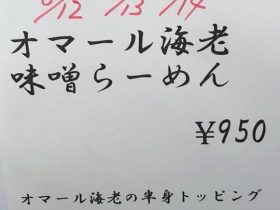 /12 /13 /14
オマール海老
味噌らーめん
¥950
オマール海老の半身トッピング